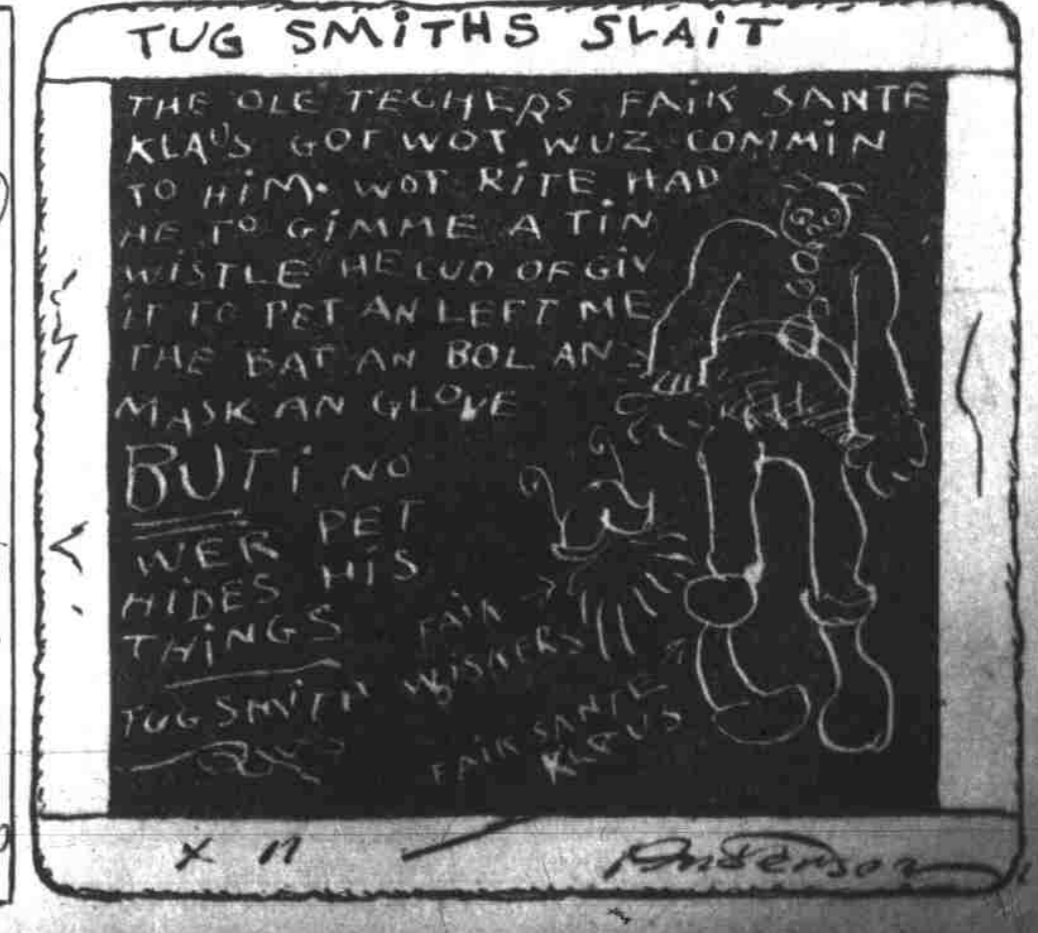 TUG SMiTHS SLAiT
THE OLE TECHERS FAiK SANTE
KLAUS GOT WOT WUZ COMMiN
TO HiM. WOT RiTE HAD
HE TO GiMME A TiN
WiSTLE HE CUD OF GiV
iT TO PET AN LEFT ME
THE BAT AN BOL AN
MASK AN GLOVE
BUT i NO
WER PET
HiDES HiS
THiNGS
TUG SMiTH
FAiK
WiSKERS
FAiK SANTE
KLAUS
X 11
Anderson